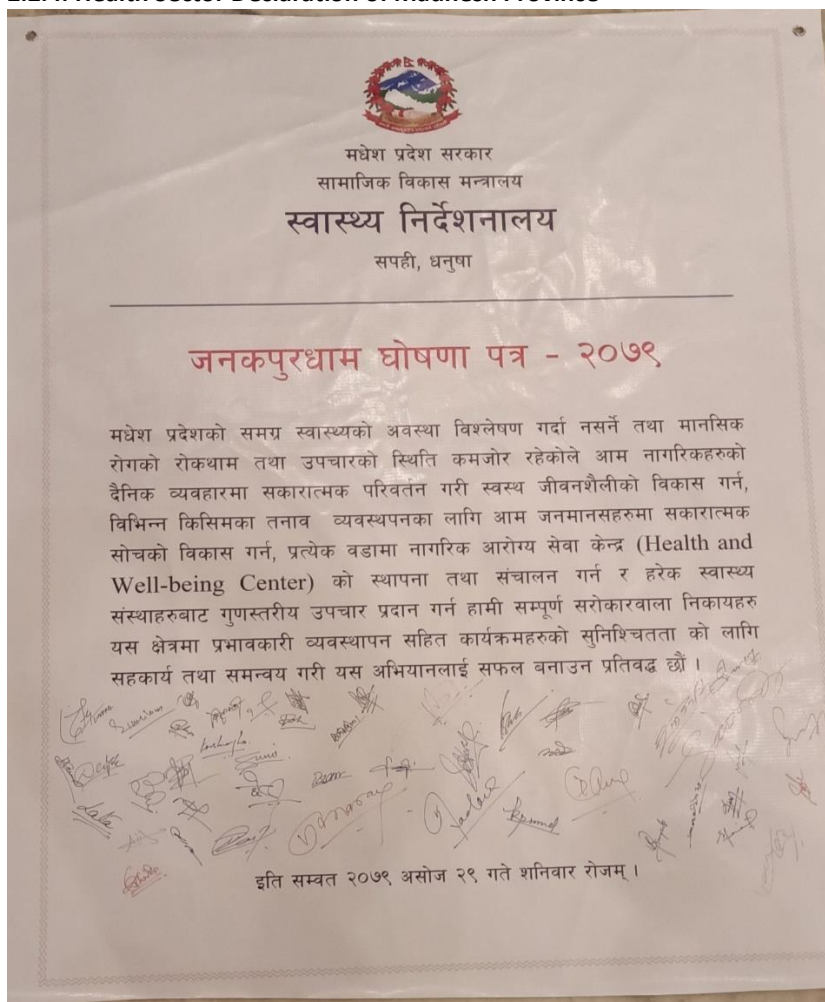 मधेश प्रदेश सरकार
सामाजिक विकास मन्त्रालय
स्वास्थ्य निर्देशनालय
सपही, धनुषा
जनकपुरधाम घोषणा पत्र - २०७९
मधेश प्रदेशको समग्र स्वास्थ्यको अवस्था विश्लेषण गर्दा नसर्ने तथा मानसिक
रोगको रोकथाम तथा उपचारको स्थिति कमजोर रहेकोले आम नागरिकहरुको
दैनिक व्यवहारमा सकारात्मक परिवर्तन गरी स्वस्थ जीवनशैलीको विकास गर्न,
विभिन्न किसिमका तनाव व्यवस्थपनका लागि आम जनमानसहरुमा सकारात्मक
सोचको विकास गर्न, प्रत्येक वडामा नागरिक आरोग्य सेवा केन्द्र (Health and
Well-being Center) को स्थापना तथा संचालन गर्न र हरेक स्वास्थ्य
संस्थाहरुबाट गुणस्तरीय उपचार प्रदान गर्न हामी सम्पूर्ण सरोकारवाला निकायहरु
यस क्षेत्रमा प्रभावकारी व्यवस्थापन सहित कार्यक्रमहरुको सुनिश्चितता को लागि
सहकार्य तथा समन्वय गरी यस अभियानलाई सफल बनाउन प्रतिवद्ध छौं ।
इति सम्वत २०७९ असोज २९ गते शनिवार रोजम् ।